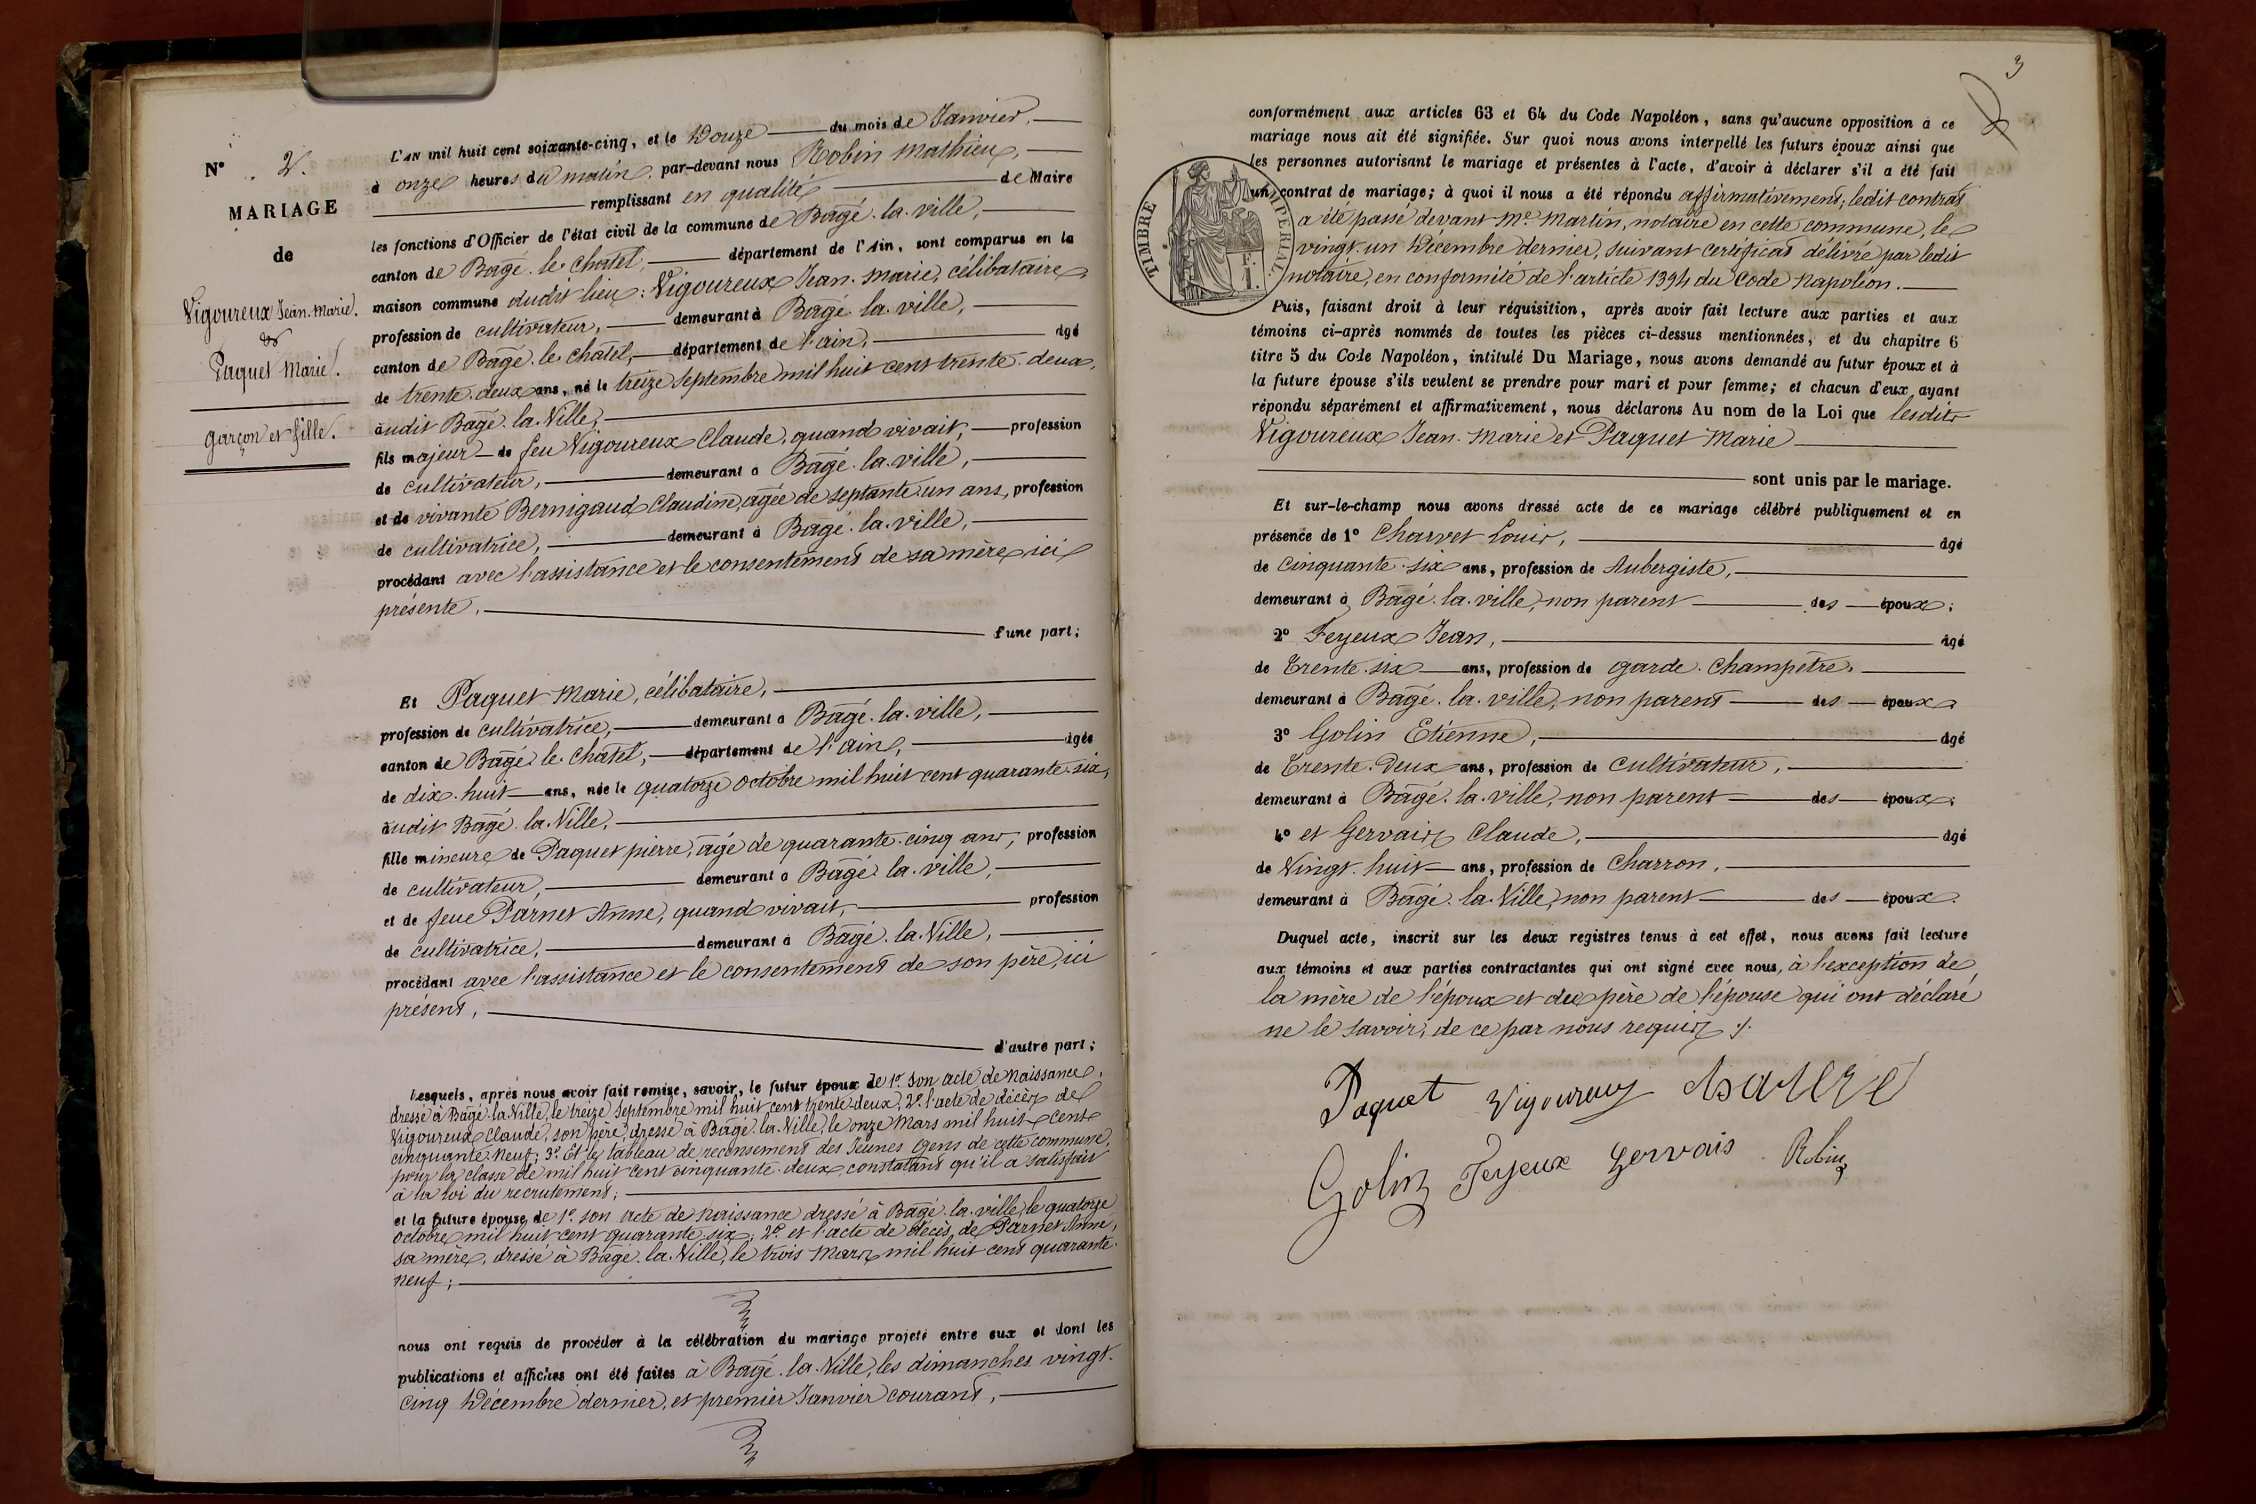 N° 2.
MARIAGE
de
Vigoureux Jean-Marie.
&
Paquet Marie.
garçon et fille.
L'AN mil huit cent soixante-cinq, et le Douze du mois de Janvier,
à onze heures du matin, par-devant nous Robin Mathieu,
remplissant en qualité de Maire
les fonctions d'Officier de l'état civil de la commune de Bâgé-la-ville,
canton de Bâgé-le-Châtel, département de l'Ain, sont comparus en la
maison commune dudit lieu: Vigoureux Jean-Marie, célibataire,
profession de cultivateur, demeurant à Bâgé-la-ville,
canton de Bâgé-le-Châtel, département de l'ain, âgé
de trente-deux ans, né le treize Septembre mil huit cent trente-deux,
audit Bâgé-la-Ville,
fils majeur de feu Vigoureux Claude, quand vivait, profession
de cultivateur, demeurant à Bâgé-la-ville,
et de vivante Bernigaud Claudine, agée de septante-un ans, profession
de cultivatrice, demeurant à Bâgé-la-ville,
procédant avec l'assistance et le consentement de sa mère, ici
présente,
d'une part;
Et Paquet Marie, célibataire,
profession de cultivatrice, demeurant à Bâgé-la-ville,
canton de Bâgé-le-Châtel, département de l'ain, âgée
de dix-huit ans, née le quatorze octobre mil huit cent quarante-six,
audit Bâgé-la-Ville,
fille mineure de Paquet pierre, âgé de quarante-cinq ans, profession
de cultivateur, demeurant à Bâgé-la-ville,
et de feue Parnet Anne, quand vivait, profession
de cultivatrice, demeurant à Bâgé-la-Ville,
procédant avec l'assistance et le consentement de son père, ici
présent,
d'autre part;
Lesquels, après nous avoir fait remise, savoir, le futur époux de 1° son acte de Naissance,
dressé à Bâgé-la-Ville, le treize Septembre mil huit cent trente-deux, 2° l'acte de décès de
Vigoureux Claude, son père, dressé à Bâgé-la-Ville, le onze Mars mil huit cent
cinquante-Neuf; 3° Et le tableau de recensement des Jeunes Gens de cette commune,
pour la classe de mil huit cent cinquante-deux, constatant qu'il a satisfait
à la loi du recrutement;
et la future épouse de 1° son acte de Naissance dressé à Bâgé-la-ville, le quatorze
Octobre mil huit cent quarante-six; 2° et l'acte de décès de Parnet Anne,
sa mère, dressé à Bâgé-la-Ville, le trois Mars mil huit cent quarante-
neuf;
nous ont requis de procéder à la célébration du mariage projeté entre eux et dont les
publications et affiches ont été faites à Bâgé-la-Ville, les dimanches vingt-
cinq Décembre dernier, et premier Janvier courant,
3
conformément aux articles 63 et 64 du Code Napoléon, sans qu'aucune opposition à ce
mariage nous ait été signifiée. Sur quoi nous avons interpellé les futurs époux ainsi que
les personnes autorisant le mariage et présentes à l'acte, d'avoir à déclarer s'il a été fait
un contrat de mariage; à quoi il nous a été répondu affirmativement; ledit contrat
a été passé devant Me Martin, notaire en cette commune, le
vingt-un Décembre dernier, suivant certificat délivré par ledit
notaire, en conformité de l'article 1394 du Code Napoléon.
TIMBRE IMPERIAL
Puis, faisant droit à leur réquisition, après avoir fait lecture aux parties et aux
témoins ci-après nommés de toutes les pièces ci-dessus mentionnées, et du chapitre 6
titre 5 du Code Napoléon, intitulé Du Mariage, nous avons demandé au futur époux et à
la future épouse s'ils veulent se prendre pour mari et pour femme; et chacun d'eux ayant
répondu séparément et affirmativement, nous déclarons Au nom de la Loi que lesdits
Vigoureux Jean-Marie et Paquet Marie
sont unis par le mariage.
Et sur-le-champ nous avons dressé acte de ce mariage célébré publiquement et en
présence de 1° Charvet Louis, âgé
de Cinquante-six ans, profession de Aubergiste,
demeurant à Bâgé-la-ville, non parent des époux;
2° Feyeux Jean, âgé
de Trente-six ans, profession de garde-Champêtre,
demeurant à Bâgé-la-ville, non parent des époux
3° Golin Etienne, âgé
de Trente-Deux ans, profession de Cultivateur,
demeurant à Bâgé-la-ville, non parent des époux;
4° et Gervais Claude, âgé
de Vingt-huit ans, profession de Charron,
demeurant à Bâgé-la-Ville, non parent des époux.
Duquel acte, inscrit sur les deux registres tenus à cet effet, nous avons fait lecture
aux témoins et aux parties contractantes qui ont signé avec nous, à l'exception de
la mère de l'époux et du père de l'épouse qui ont déclaré
ne le savoir, de ce par nous requis ./.
Paquet Vigoureux
Golin Feyeux Gervais Robin